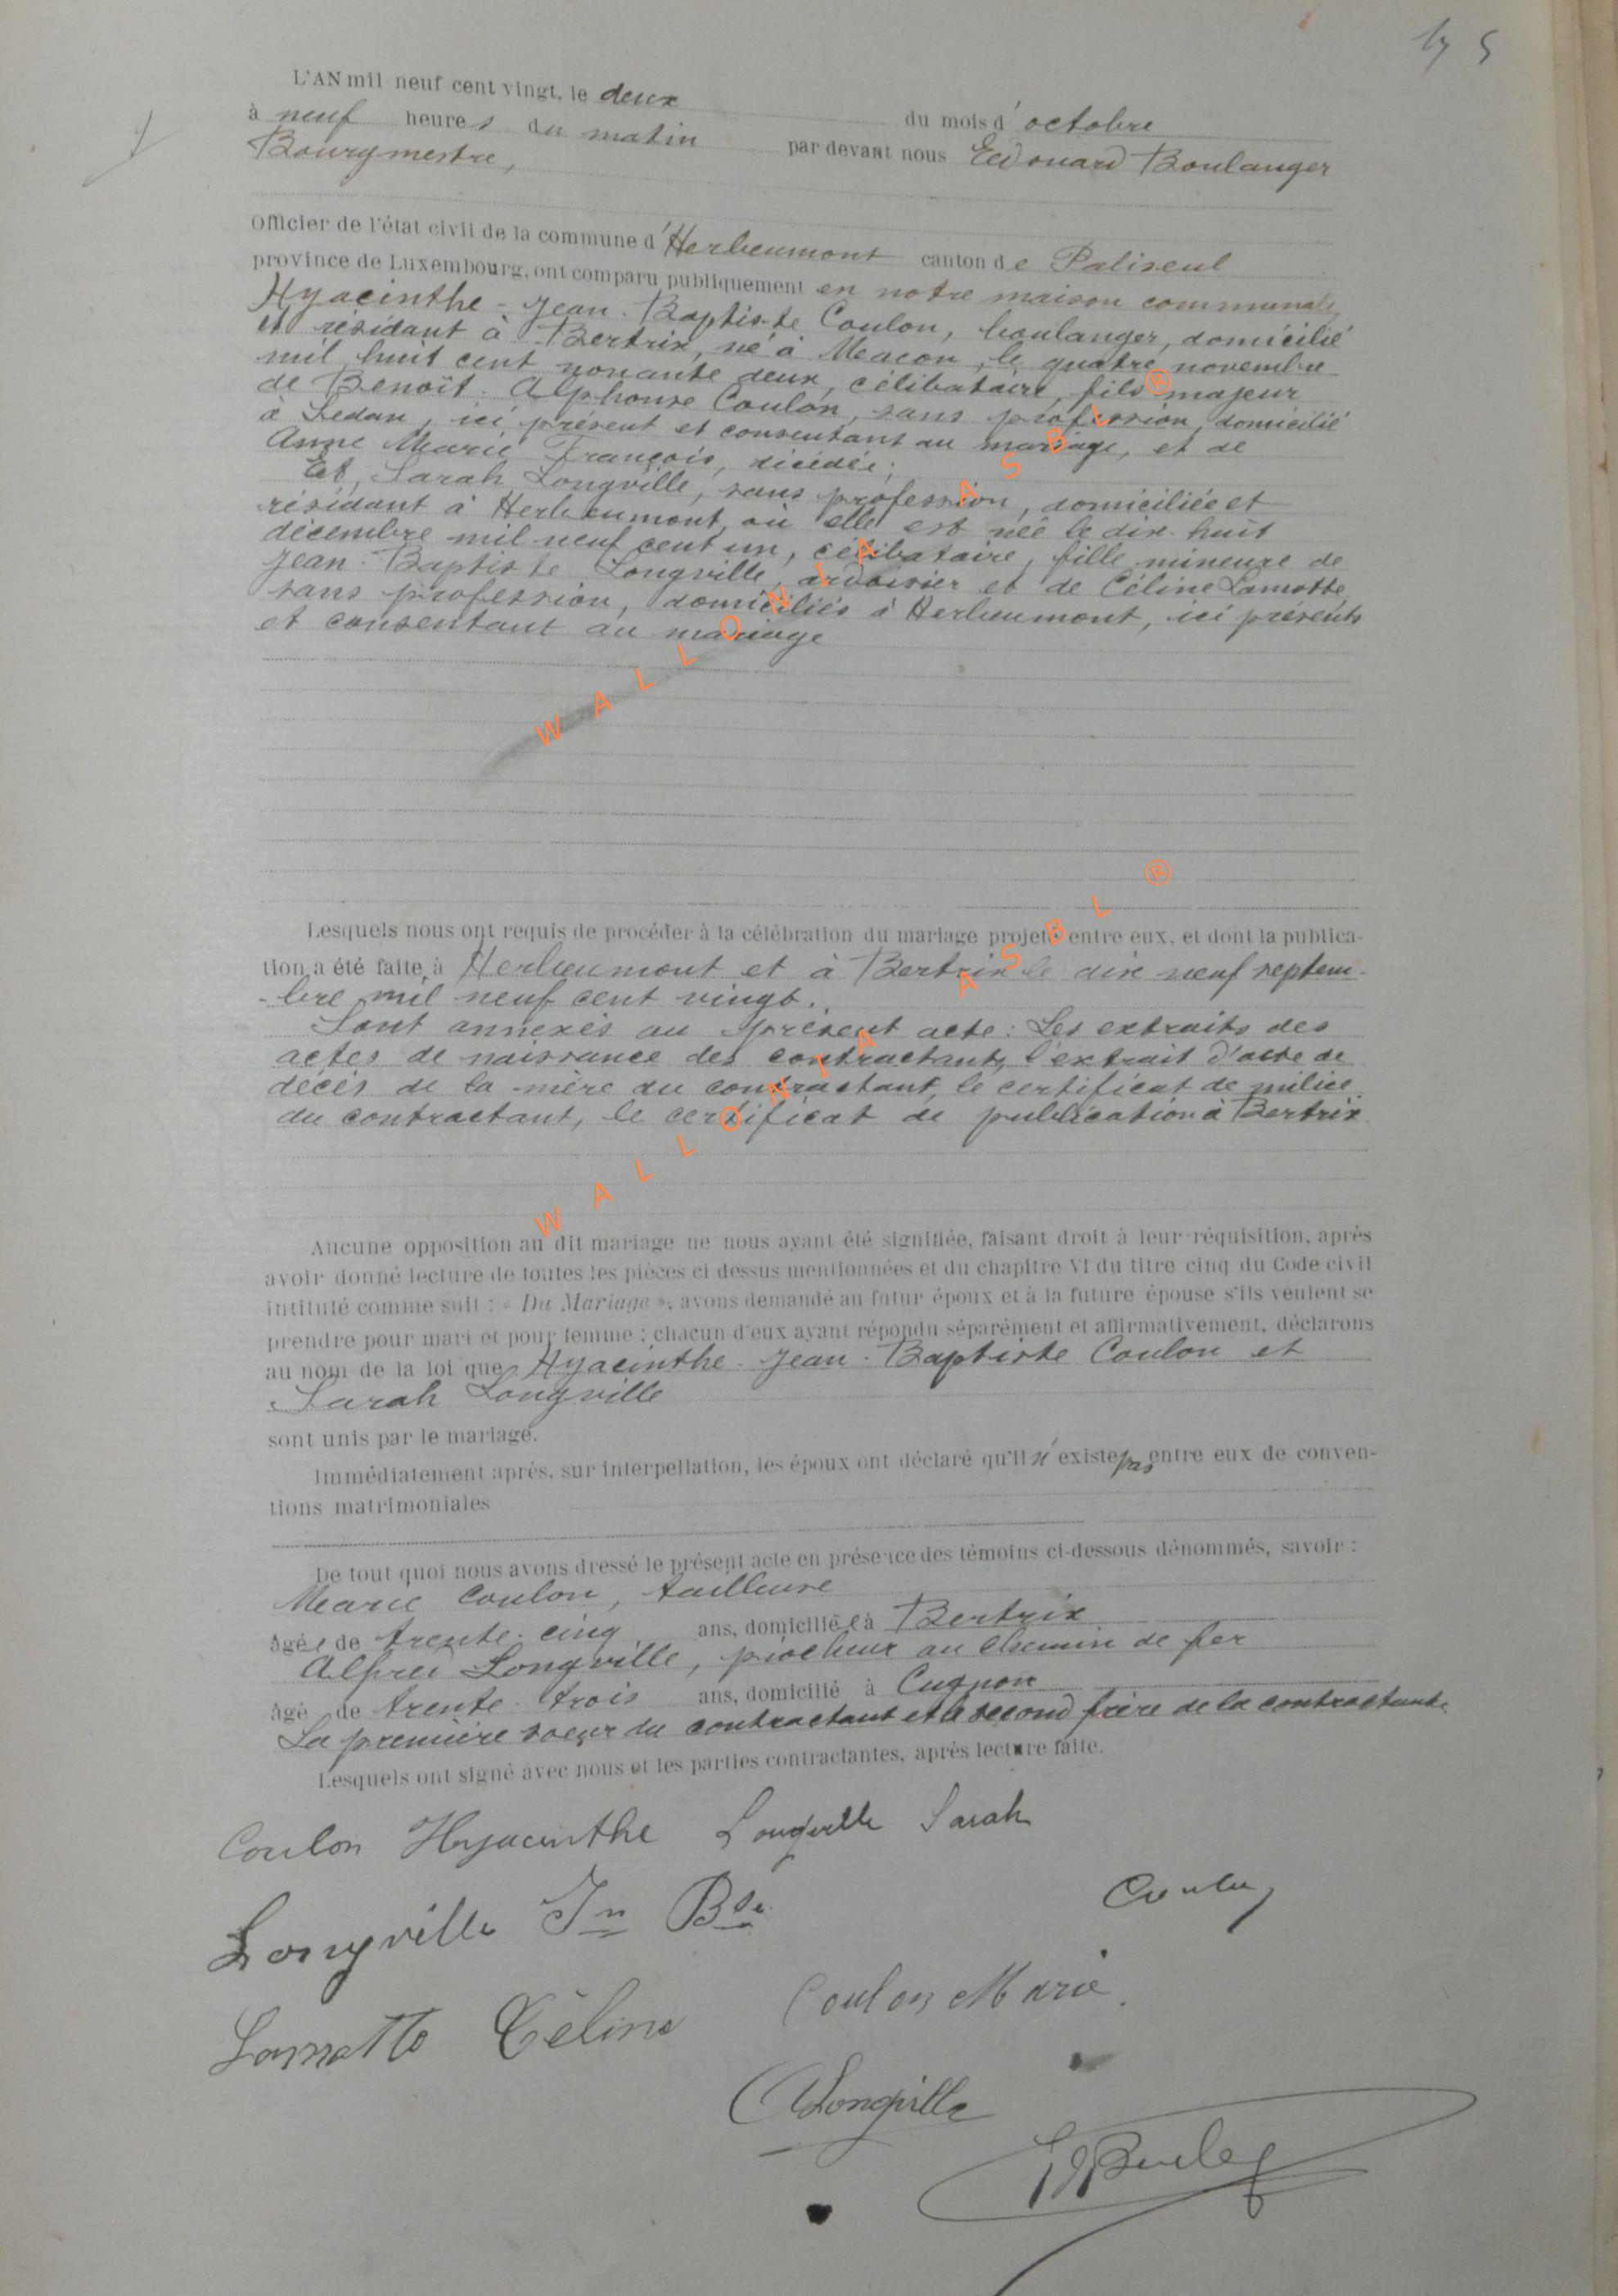 L'AN mil neuf cent vingt, le deux du mois d'octobre
à neuf heures du matin par devant nous Edouard Boulanger
Bourgmestre,
Officier de l'état civil de la commune d'Herbeumont canton de Paliseul
province de Luxembourg, ont comparu publiquement en notre maison communale,
Hyacinthe-Jean-Baptiste Coulon, boulanger, domicilié
et résidant à Bertrix, né à Macon, le quatre novembre
mil huit cent nonante deux, célibataire, fils majeur
de Benoît-Alphonse Coulon, sans profession, domicilié
à Sedan, ici présent et consentant au mariage, et de
Anne Marie François, décédée;
Et, Sarah Longville, sans profession, domiciliée et
résidant à Herbeumont, où elle est née le dix-huit
décembre mil neuf cent un, célibataire, fille mineure de
Jean-Baptiste Longville, ardoisier et de Céline Lamotte,
sans profession, domiciliés à Herbeumont, ici présents
et consentant au mariage
WALLONIA ASBL ®
Lesquels nous ont requis de procéder à la célébration du mariage projeté entre eux, et dont la publica-
tion a été faite à Herbeumont et à Bertrix le dix neuf septem-
-bre mil neuf cent vingt.
Sont annexés au présent acte: Les extraits des
actes de naissance des contractants, l'extrait d'acte de
décès de la mère du contractant, le certificat de milice
du contractant, le certificat de publication à Bertrix
WALLONIA ASBL ®
Aucune opposition au dit mariage ne nous ayant été signifiée, faisant droit à leur réquisition, après
avoir donné lecture de toutes les pièces ci dessus mentionnées et du chapitre VI du titre cinq du Code civil
intitulé comme suit : « Du Mariage », avons demandé au futur époux et à la future épouse s'ils veulent se
prendre pour mari et pour femme ; chacun d'eux ayant répondu séparément et affirmativement, déclarons
au nom de la loi que Hyacinthe-Jean-Baptiste Coulon et
Sarah Longville
sont unis par le mariage.
Immédiatement après, sur interpellation, les époux ont déclaré qu'il n'existe pas entre eux de conven-
tions matrimoniales
De tout quoi nous avons dressé le présent acte en présence des témoins ci-dessous dénommés, savoir :
Marie Coulon, tailleuse
âgée de trente-cinq ans, domiciliée à Bertrix
Alfred Longville, piocheur au chemin de fer
âgé de trente-trois ans, domicilié à Cugnon
La première soeur du contractant et le second frère de la contractante.
Lesquels ont signé avec nous et les parties contractantes, après lecture faite.
Coulon Hyacinthe Longville Sarah
Longville Jn Bte
Coulon
Lamotte Céline Coulon Marie.
A Longville